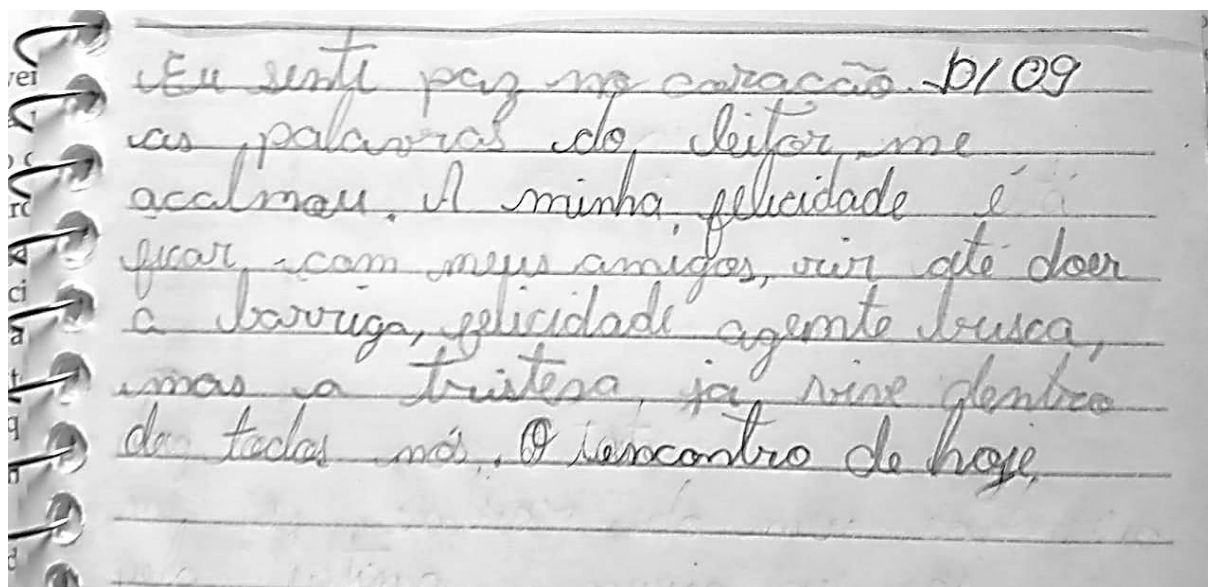 Eu senti paz no coração. D/09
as palavras do leitor me
acalmau. A minha felicidade é
ficar com meus amigos, rir até doer
a barriga, felicidade agente busca,
mas a tristesa ja vive dentro
de todos nós. O encontro de hoje